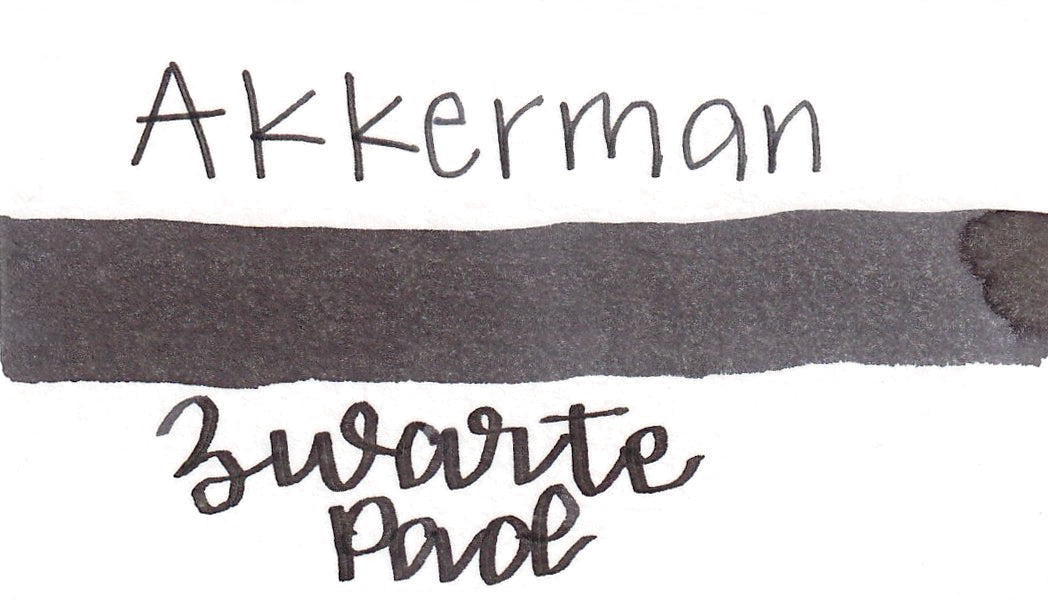 Akkerman
Zwarte
Pad